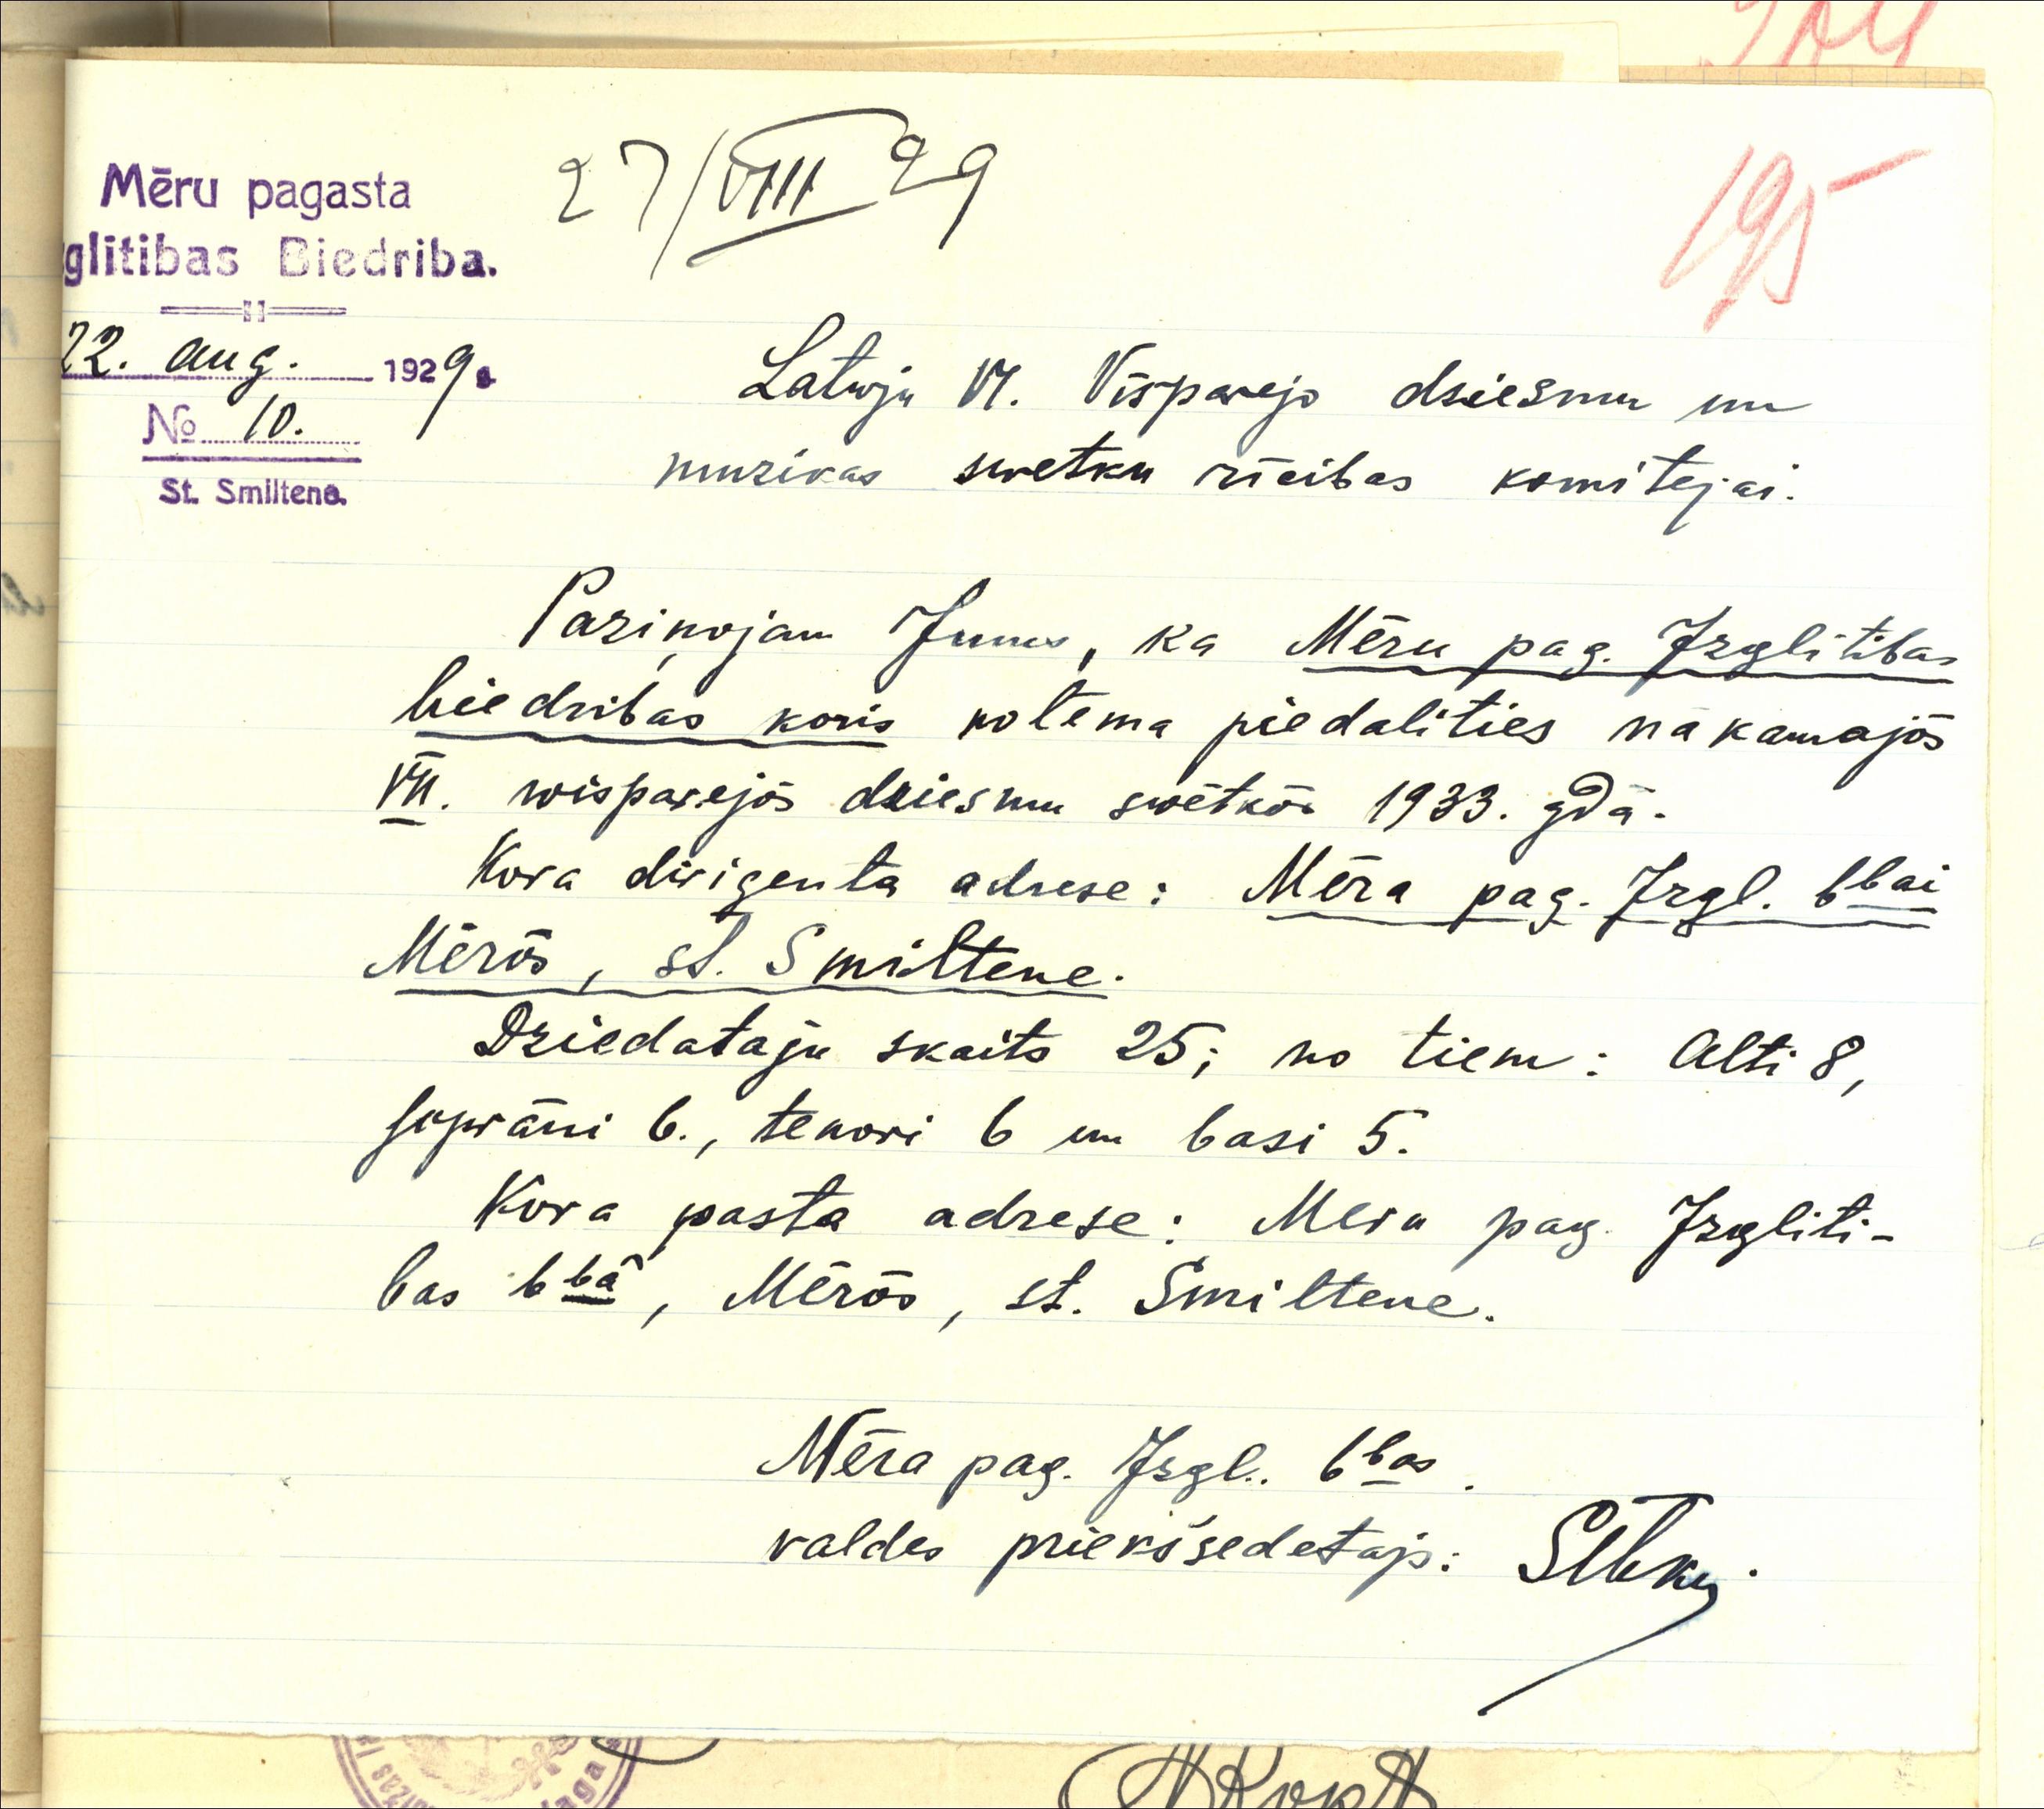 Mēru pagasta
glitibas Biedriba.
22. aug. 1929.
No 10.
St. Smiltene.
27/VIII 29
195
Latwju VI. Visparejo dziesmu un
muzikas swetku rīcibas komitejai.
Paziņojam Jums, ka Mēru pag. Izglitibas
biedribas koris notema piedalities nākamajōs
VII. wisparejōs dziesmu swētkōs 1933. gdā.
Kora dirigenta adrese: Mēra pag. Izgl. bbai
Mērōs, st. Smiltene.
Dziedataju skaits 25; no tiem: Alti 8,
soprāni 6., tenori 6 un basi 5.
Kora pasta adrese: Meru pag. Izgliti-
bas bbā, Mērōs, st. Smiltene.
Mēra pag. Izgl. bbas
valdes priekšsedetajs: